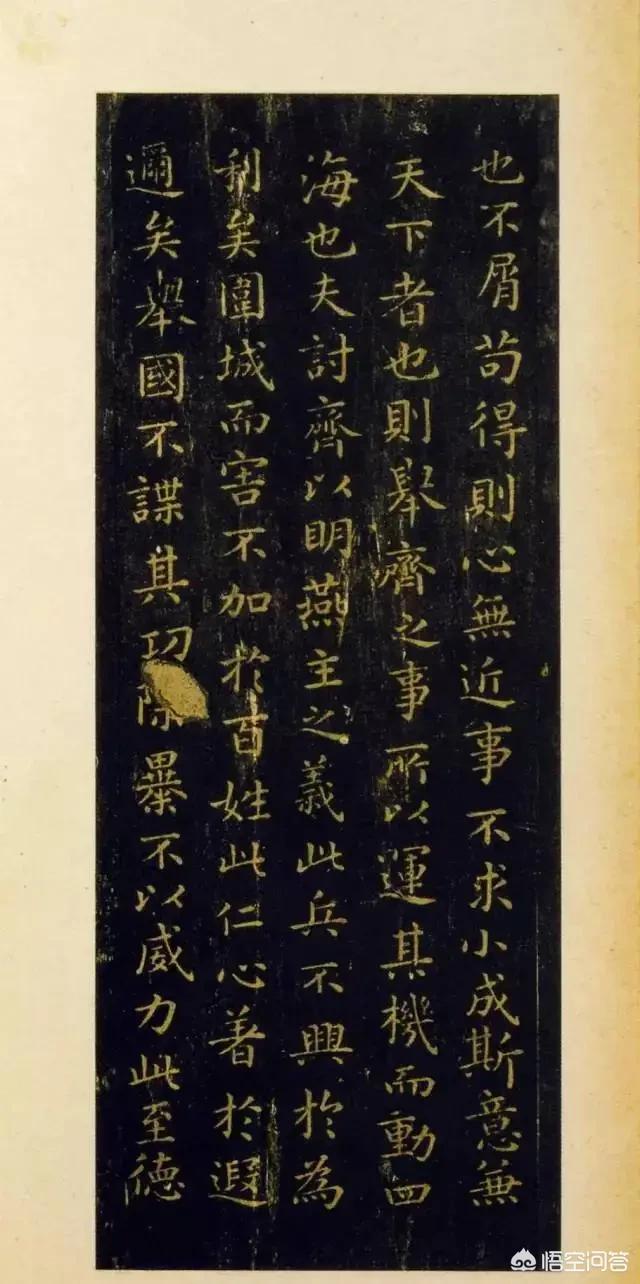 也不屑苟得則心無近事不求小成斯意無
天下者也則舉齊之事所以運其機而動四
海也夫討齊以明燕主之義此兵不興於為
利矣圍城而害不加於百姓此仁心著於遐
邇矣舉國不謀其功除暴不以威力此至德
悟空问答